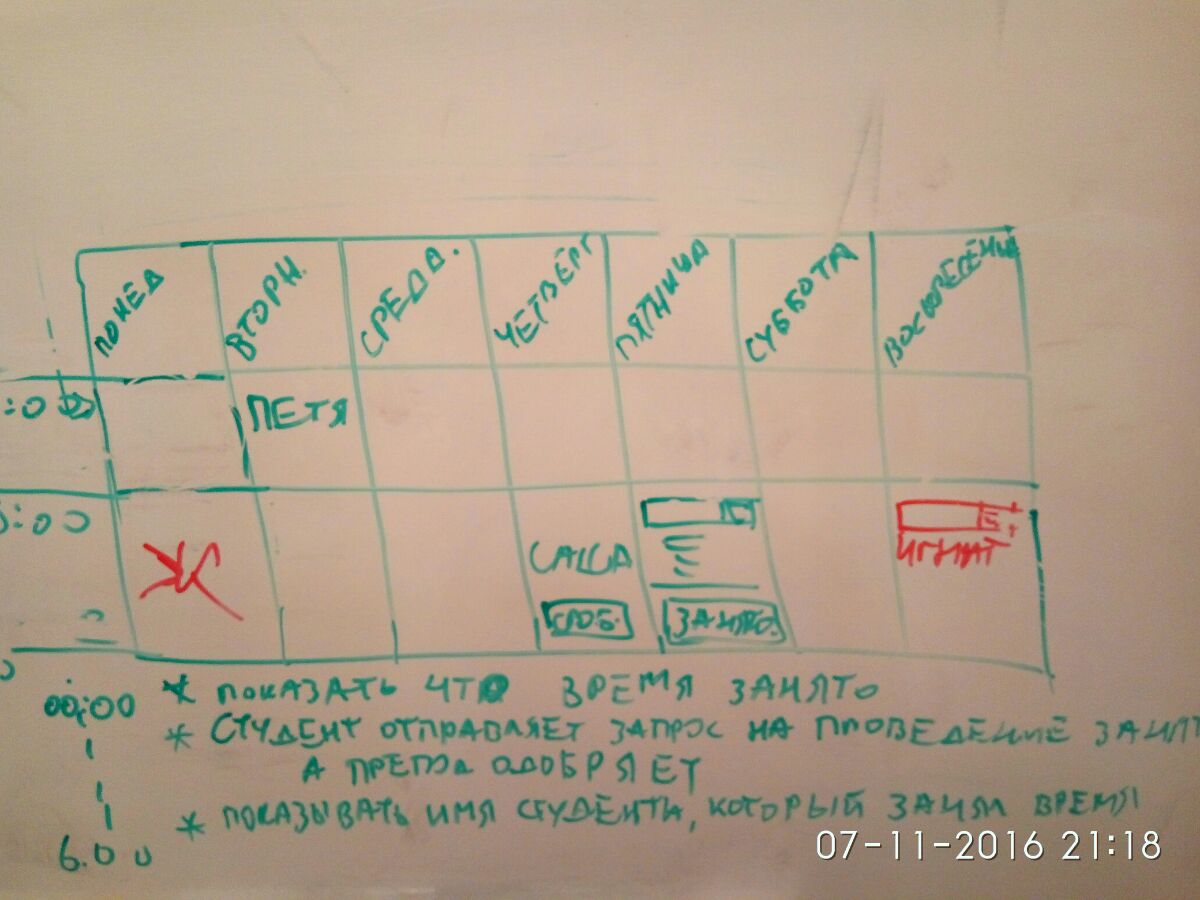 ПОНЕД ВТОРН. СРЕДА. ЧЕТВЕРГ ПЯТНИЦА СУББОТА ВОСКРЕСЕНЬЕ
:0
ПЕТЯ
:00
САША
СВОБ. ЗАНЯТО.
ИГНАТ
00:00
6.00
* ПОКАЗАТЬ ЧТО ВРЕМЯ ЗАНЯТО
* СТУДЕНТ ОТПРАВЛЯЕТ ЗАПРОС НА ПРОВЕДЕНИЕ ЗАНЯТ
А ПРЕПОД ОДОБРЯЕТ
* ПОКАЗЫВАТЬ ИМЯ СТУДЕНТА, КОТОРЫЙ ЗАНЯЛ ВРЕМЯ
07-11-2016 21:18